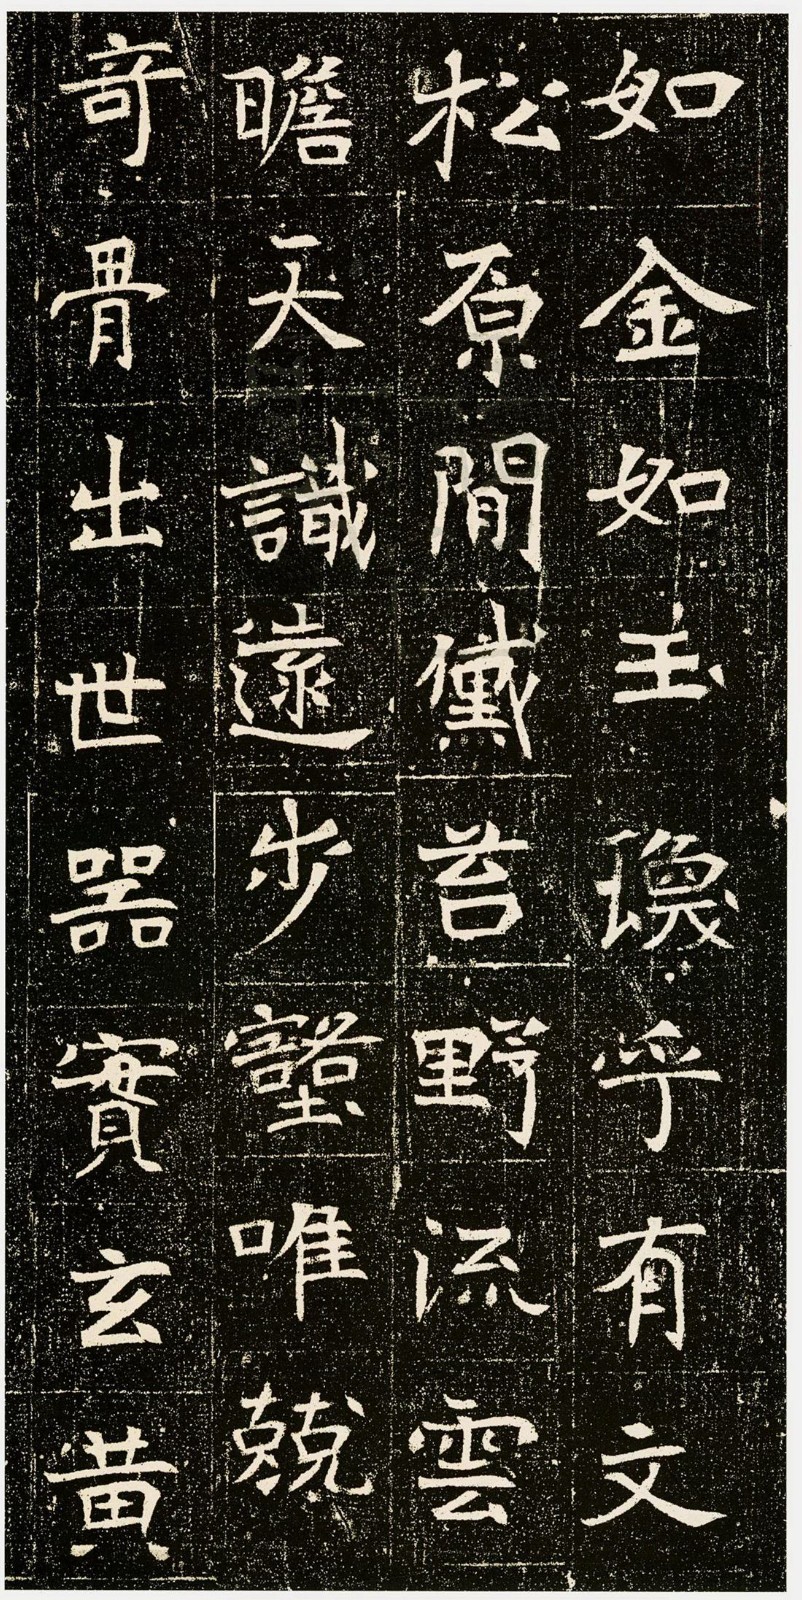 如金如玉瑍乎有文
松原閒黛苔野流雲
瞻天識遠步壑唯兢
奇骨出世器實玄黃